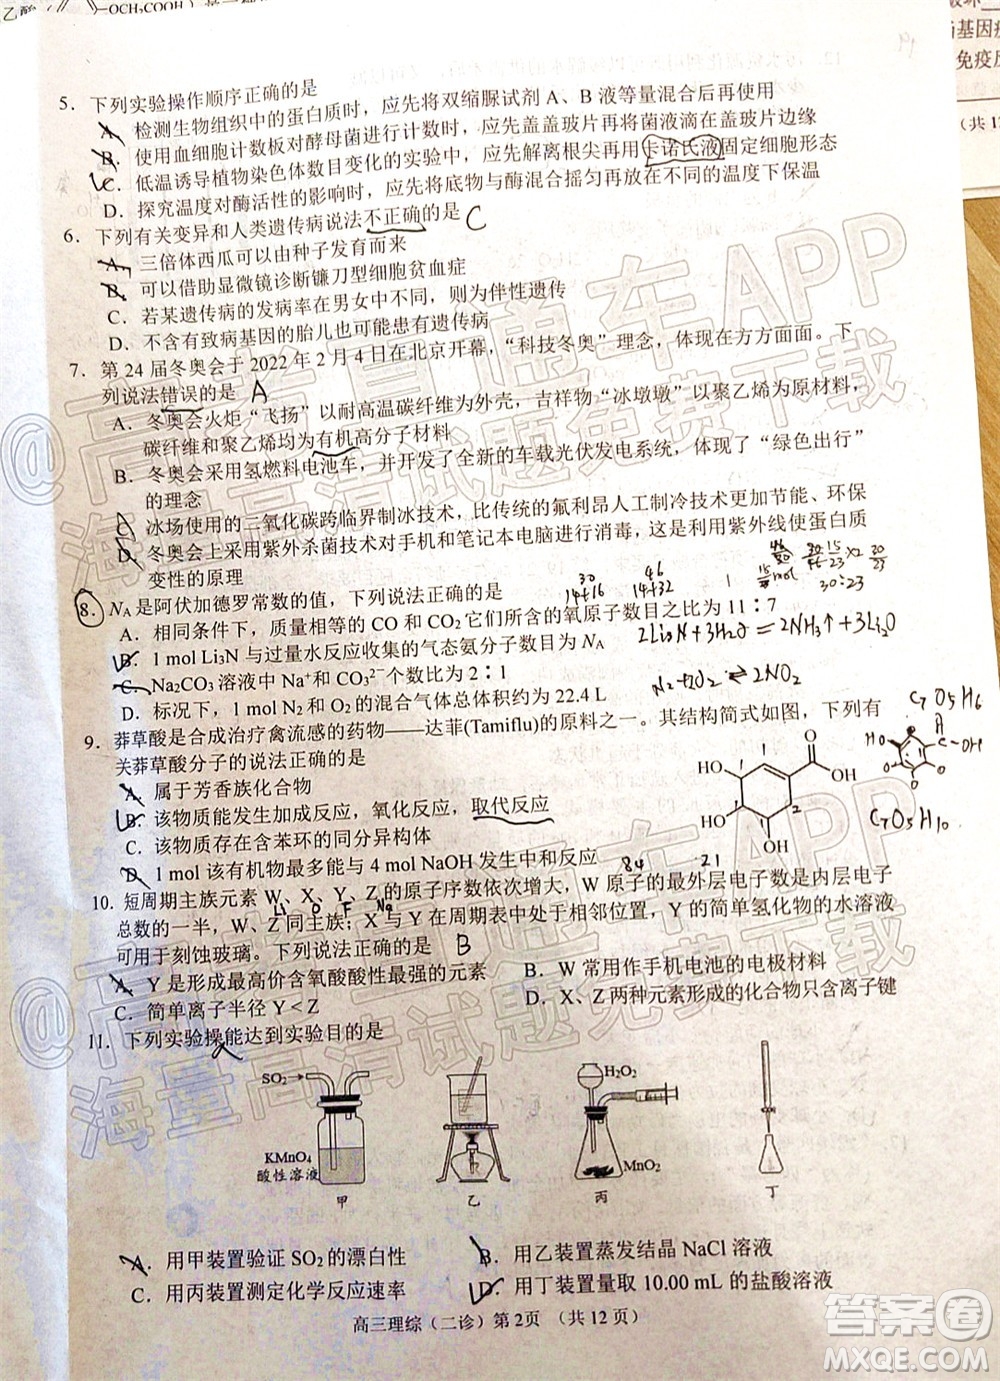 乙酸
-OCH₂COOH
5．下列实验操作顺序正确的是
A．检测生物组织中的蛋白质时，应先将双缩脲试剂 A、B 液等量混合后再使用
B．使用血细胞计数板对酵母菌进行计数时，应先盖盖玻片再将菌液滴在盖玻片边缘
C．低温诱导植物染色体数目变化的实验中，应先解离根尖再用卡诺氏液固定细胞形态
D．探究温度对酶活性的影响时，应先将底物与酶混合摇匀再放到不同的温度下保温
6．下列有关变异和人类遗传病说法不正确的是 C
A．三倍体西瓜可以由种子发育而来
B．可以借助显微镜诊断镰刀型细胞贫血症
C．若某遗传病的发病率在男女中不同，则为伴性遗传
D．不含有致病基因的胎儿也可能患遗传病
7．第 24 届冬奥会于 2022 年 2 月 4 日在北京开幕，“科技冬奥”理念，体现在方方面面。下
列说法错误的是 A
A．冬奥会火炬“飞扬”以耐高温碳纤维为外壳，吉祥物“冰墩墩”以聚乙烯为主要材料，
碳纤维和聚乙烯均为有机高分子材料
B．冬奥会采用氢燃料电池车，并开发了全新的车载光伏发电系统，体现了“绿色出行”
的理念
C．冰场使用的二氧化碳跨临界制冰技术，比传统的氟利昂人工制冷技术更加节能、环保
D．冬奥会上采用紫外杀菌技术对手机和笔记本电脑进行消毒，利用紫外线使蛋白质
变性的原理
8．NA是阿伏加德罗常数的值，下列说法正确的是
A．相同条件下，质量相等的 CO 和 CO₂它们所含的氧原子数目之比为 11∶7
B．1 mol Li₃N 与过量水反应收集的气态氨分子数目为 NA
2Li₃N+3H₂O=2NH₃↑+3Li₂O
C．Na₂CO₃ 溶液中 Na⁺和 CO₃²⁻个数比为 2∶1
D．标况下，1 mol N₂ 和 O₂ 的混合气体总体积约为 22.4 L
N₂+2O₂⇌2NO₂
9．莽草酸是合成治疗禽流感的药物——达菲(Tamiflu)的原料之一。其结构简式如图，下列有
关莽草酸分子的说法正确的是
A．属于芳香族化合物
B．该物质能发生加成反应，氧化反应，取代反应
C．该物质存在含苯环的同分异构体
D．1 mol 该有机物最多能与 4 mol NaOH 发生中和反应
O
OH
HO
HO
OH
C₇O₅H₆
C₇O₅H₁₀
84 21
10．短周期主族元素 W、X、Y、Z 的原子序数依次增大，W 原子的最外层电子数是内层电子
总数的一半，W、Z 同主族；X 与 Y 在周期表中处于相邻位置，Y 的简单氢化物的水溶液
Li O F Na
可用于刻蚀玻璃。下列说法正确的是 B
A．Y 是形成最高价含氧酸酸性最强的元素
B．W 常用作手机电池的电极材料
C．简单离子半径 Y < Z
D．X、Z 两种元素形成的化合物只含离子键
11．下列实验操能达到实验目的是
SO₂
KMnO₄
酸性溶液
甲
乙
H₂O₂
MnO₂
丙
丁
A．用甲装置验证 SO₂ 的漂白性
B．用乙装置蒸发结晶 NaCl 溶液
C．用丙装置测定化学反应速率
D．用丁装置量取 10.00 mL 的盐酸溶液
高三理综（二诊）第 2页 （共 12 页）
基因
免疫反
（共 1
@高考直通车APP
海量高清试题免费下载
@高考直通车APP
海量高清试题免费下载
答案圈
MXQE.COM